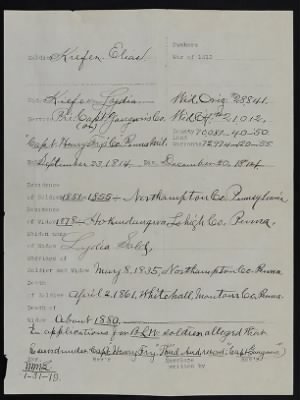 Numbers
Soldier Kiefer, Elias War of 1812
Widow Kiefer, Lydia Wid. Orig. 28841
Service Pvt. Capt. Co. Wid. Ctf. 21012
(or) Bounty 70081-40-50
"Capt. Henry Fry's Co. Penna. Mil. Land Warrants -40-55
September 23, 1814 Dis. December 20, 1814
Residence
of Soldier 1851-1855 - Northampton Co. Pennsylvania
Residence
of Widow 1878 - Hokendauqua, Lehigh Co., Penna.
Maiden name
of Widow Lydia
Marriage of
Soldier and Widow May 8, 1835, Northampton Co. Penna
Death
of Soldier April 2, 1861, Whitehall, Montour Co. Penna.
Death of
Widow About 1880.
In applications for B.L.W. soldier alleged that
he served under Capt. Henry Fry.
written by